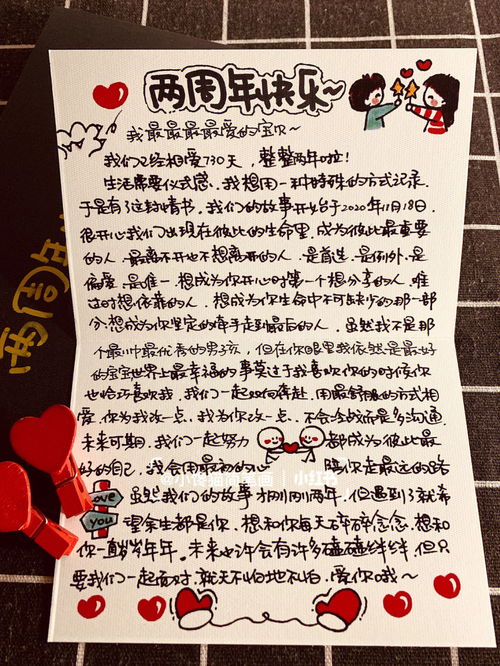 两周年快乐~
我最最最最爱的宝贝~
我们已经相爱730天，整整两年啦！
生活需要仪式感，我想用一种特殊的方式记录，
于是有了这封情书。我们的故事开始于2020年11月18日，
很开心我们出现在彼此的生命里，成为彼此最重要
的人、最离不开也不想离开的人、是首选、是例外、是
偏爱、是唯一，想成为你开心时第一个想分享的人，难
过时想依靠的人，想成为你生命中不可缺少的那一部
分，想成为你坚定的牵手走到最后的人，虽然我不是那
个最帅最优秀的男孩，但在你眼里我依然是最好
的宝宝世界上最幸福的事莫过于我喜欢你的时候你
也恰巧喜欢我，我们一起双向奔赴，用最舒服的方式相
爱，你为我改一点，我为你改一点，不会冷战而是多沟通，
未来可期，我们一起努力 都成为彼此最
好的自己，我会用最初的心 陪你走最远的路
虽然我们的故事才刚刚两年，但遇到了就希
望余生都是你，想和你每天碎碎念念，想和
你一直岁岁年年。未来也许会有许多磕磕绊绊，但只
要我们一起面对，就天不怕地不怕，爱你哦~
Love
you
小红书